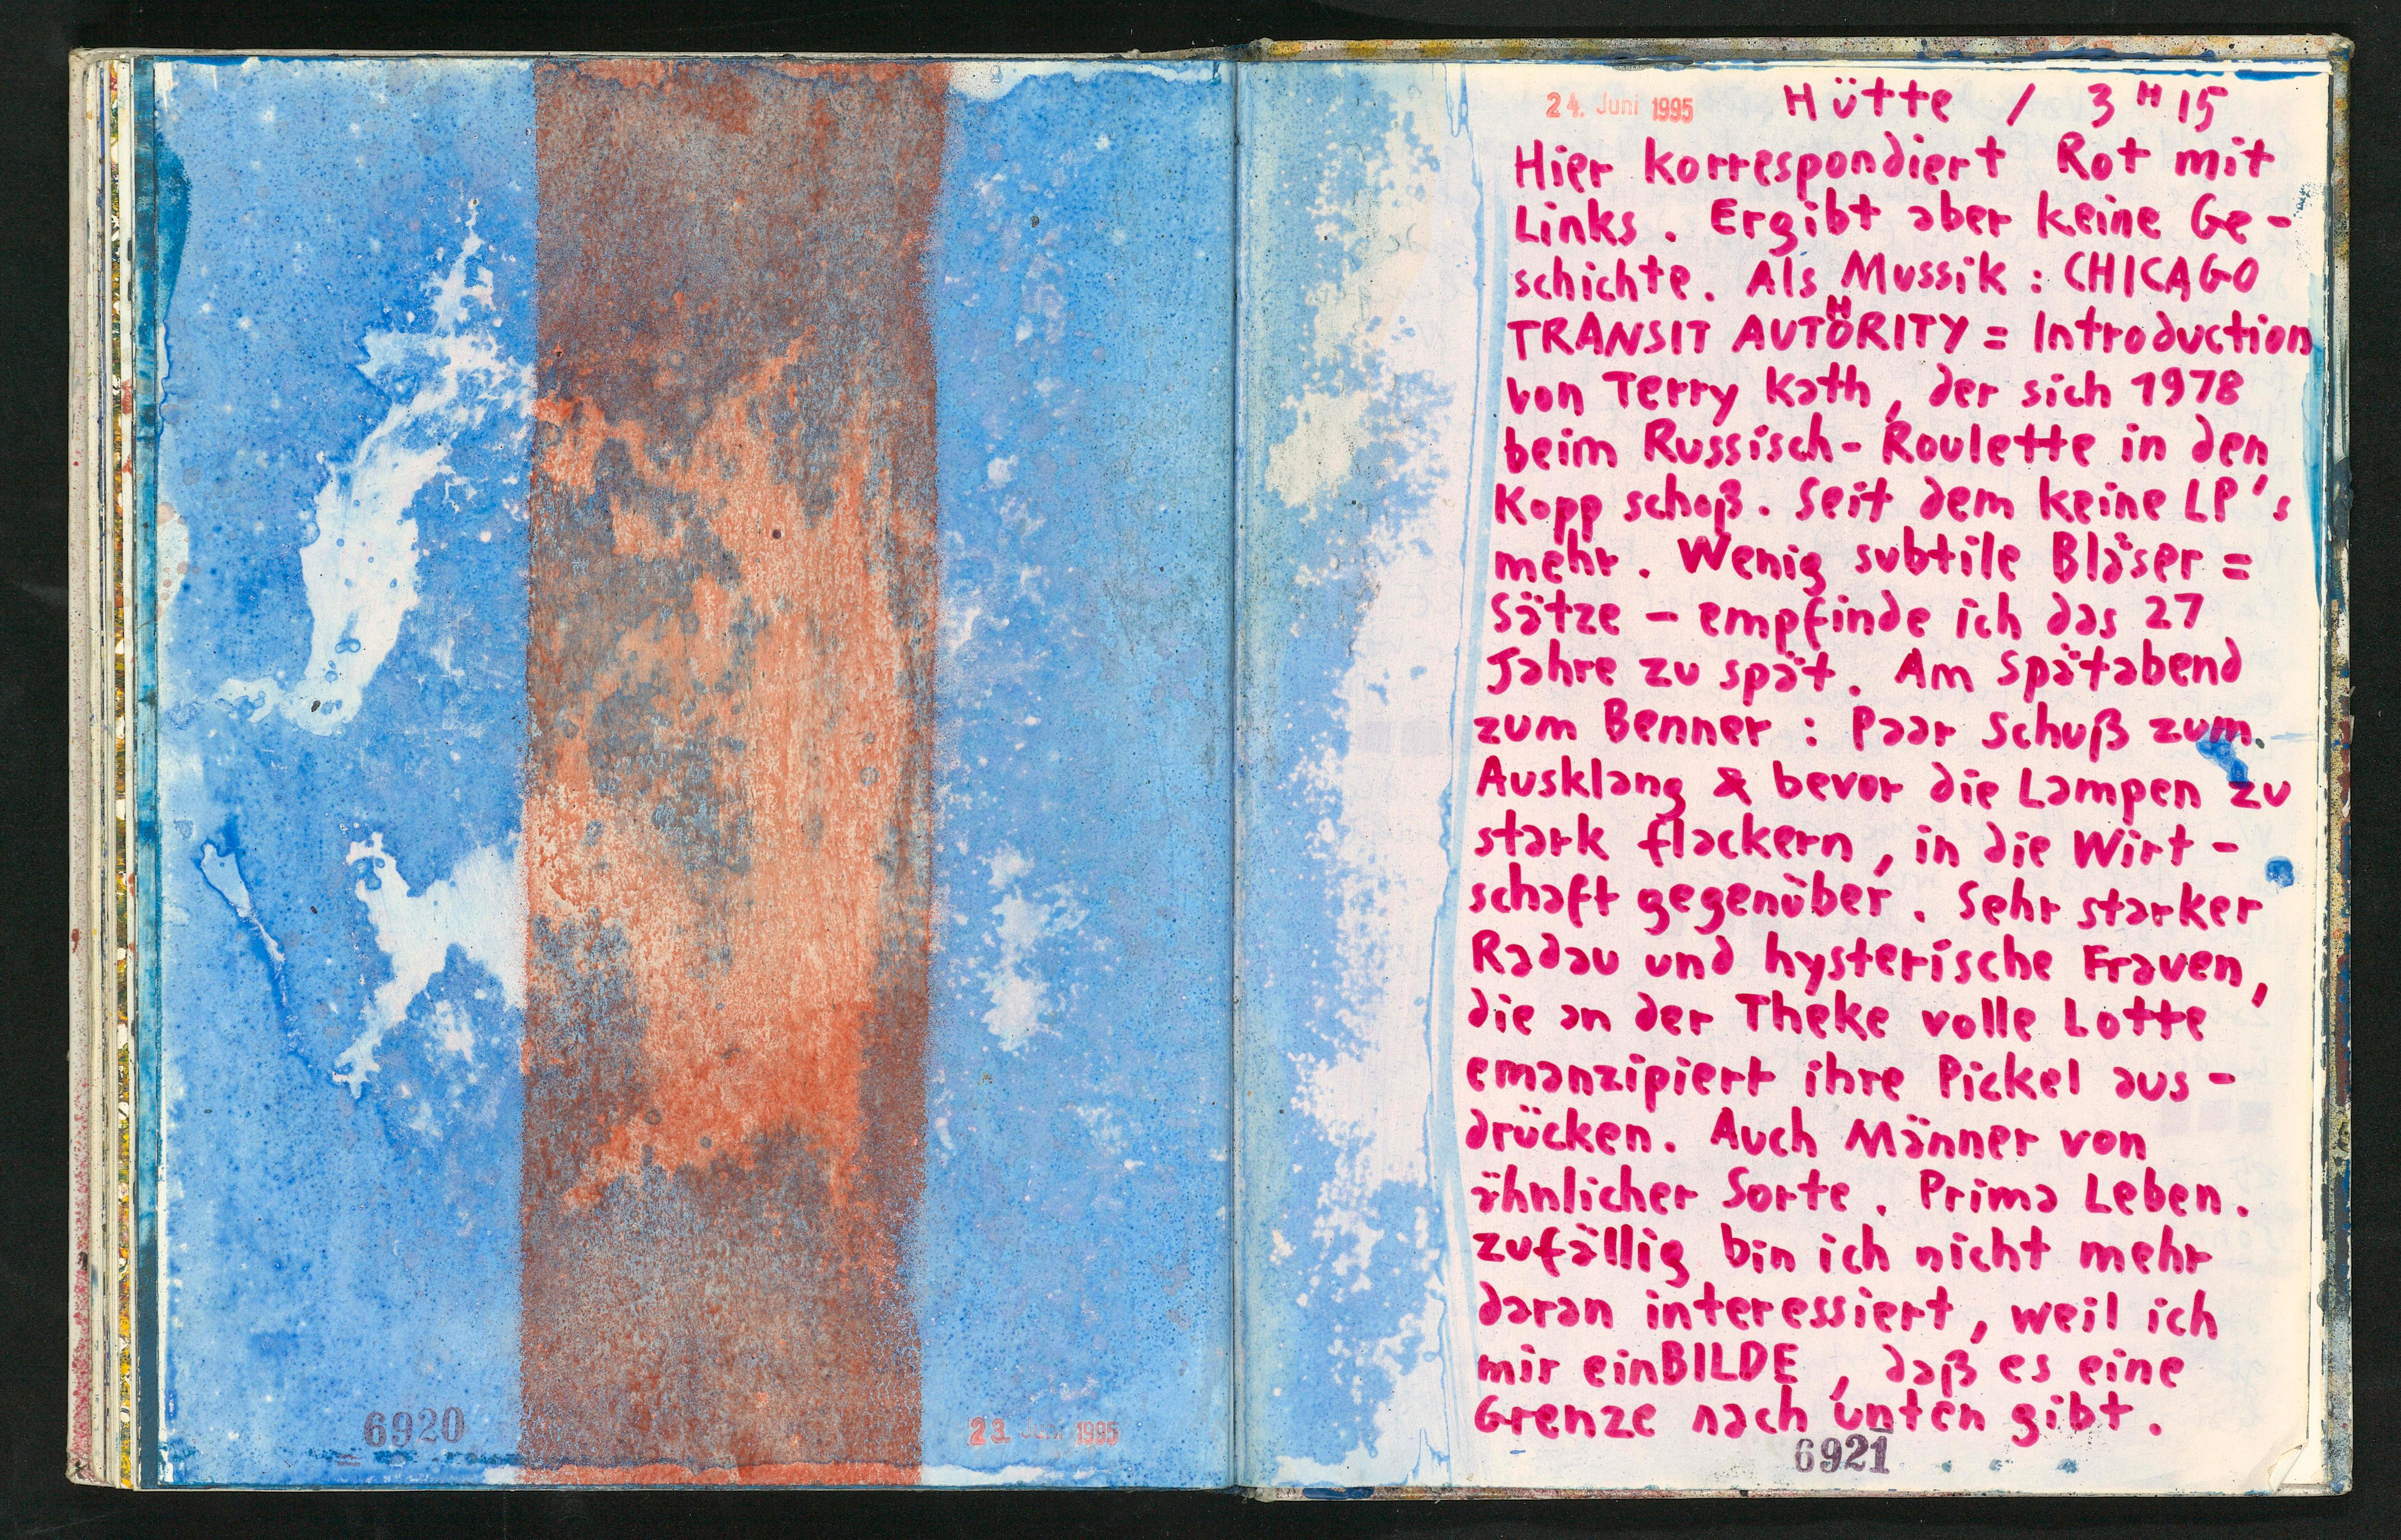 6920
23. Juni 1995
24. Juni 1995 Hütte / 3 H 15
Hier korrespondiert Rot mit
Links. Ergibt aber keine Ge-
schichte. Als Mussik: CHICAGO
TRANSIT AUTHORITY = Introduction
von Terry Kath, der sich 1978
beim Russisch-Roulette in den
Kopp schoß. Seit dem keine LP's
mehr. Wenig subtile Bläser=
Sätze – empfinde ich das 27
Jahre zu spät. Am Spätabend
zum Benner: Paar Schuß zum
Ausklang & bevor die Lampen zu
stark flackern, in die Wirt-
schaft gegenüber. Sehr starker
Radau und hysterische Frauen,
die an der Theke volle Lotte
emanzipiert ihre Pickel aus-
drücken. Auch Männer von
ähnlicher Sorte. Prima Leben.
zufällig bin ich nicht mehr
daran interessiert, weil ich
mir einBILDE, daß es eine
Grenze nach unten gibt.
6921